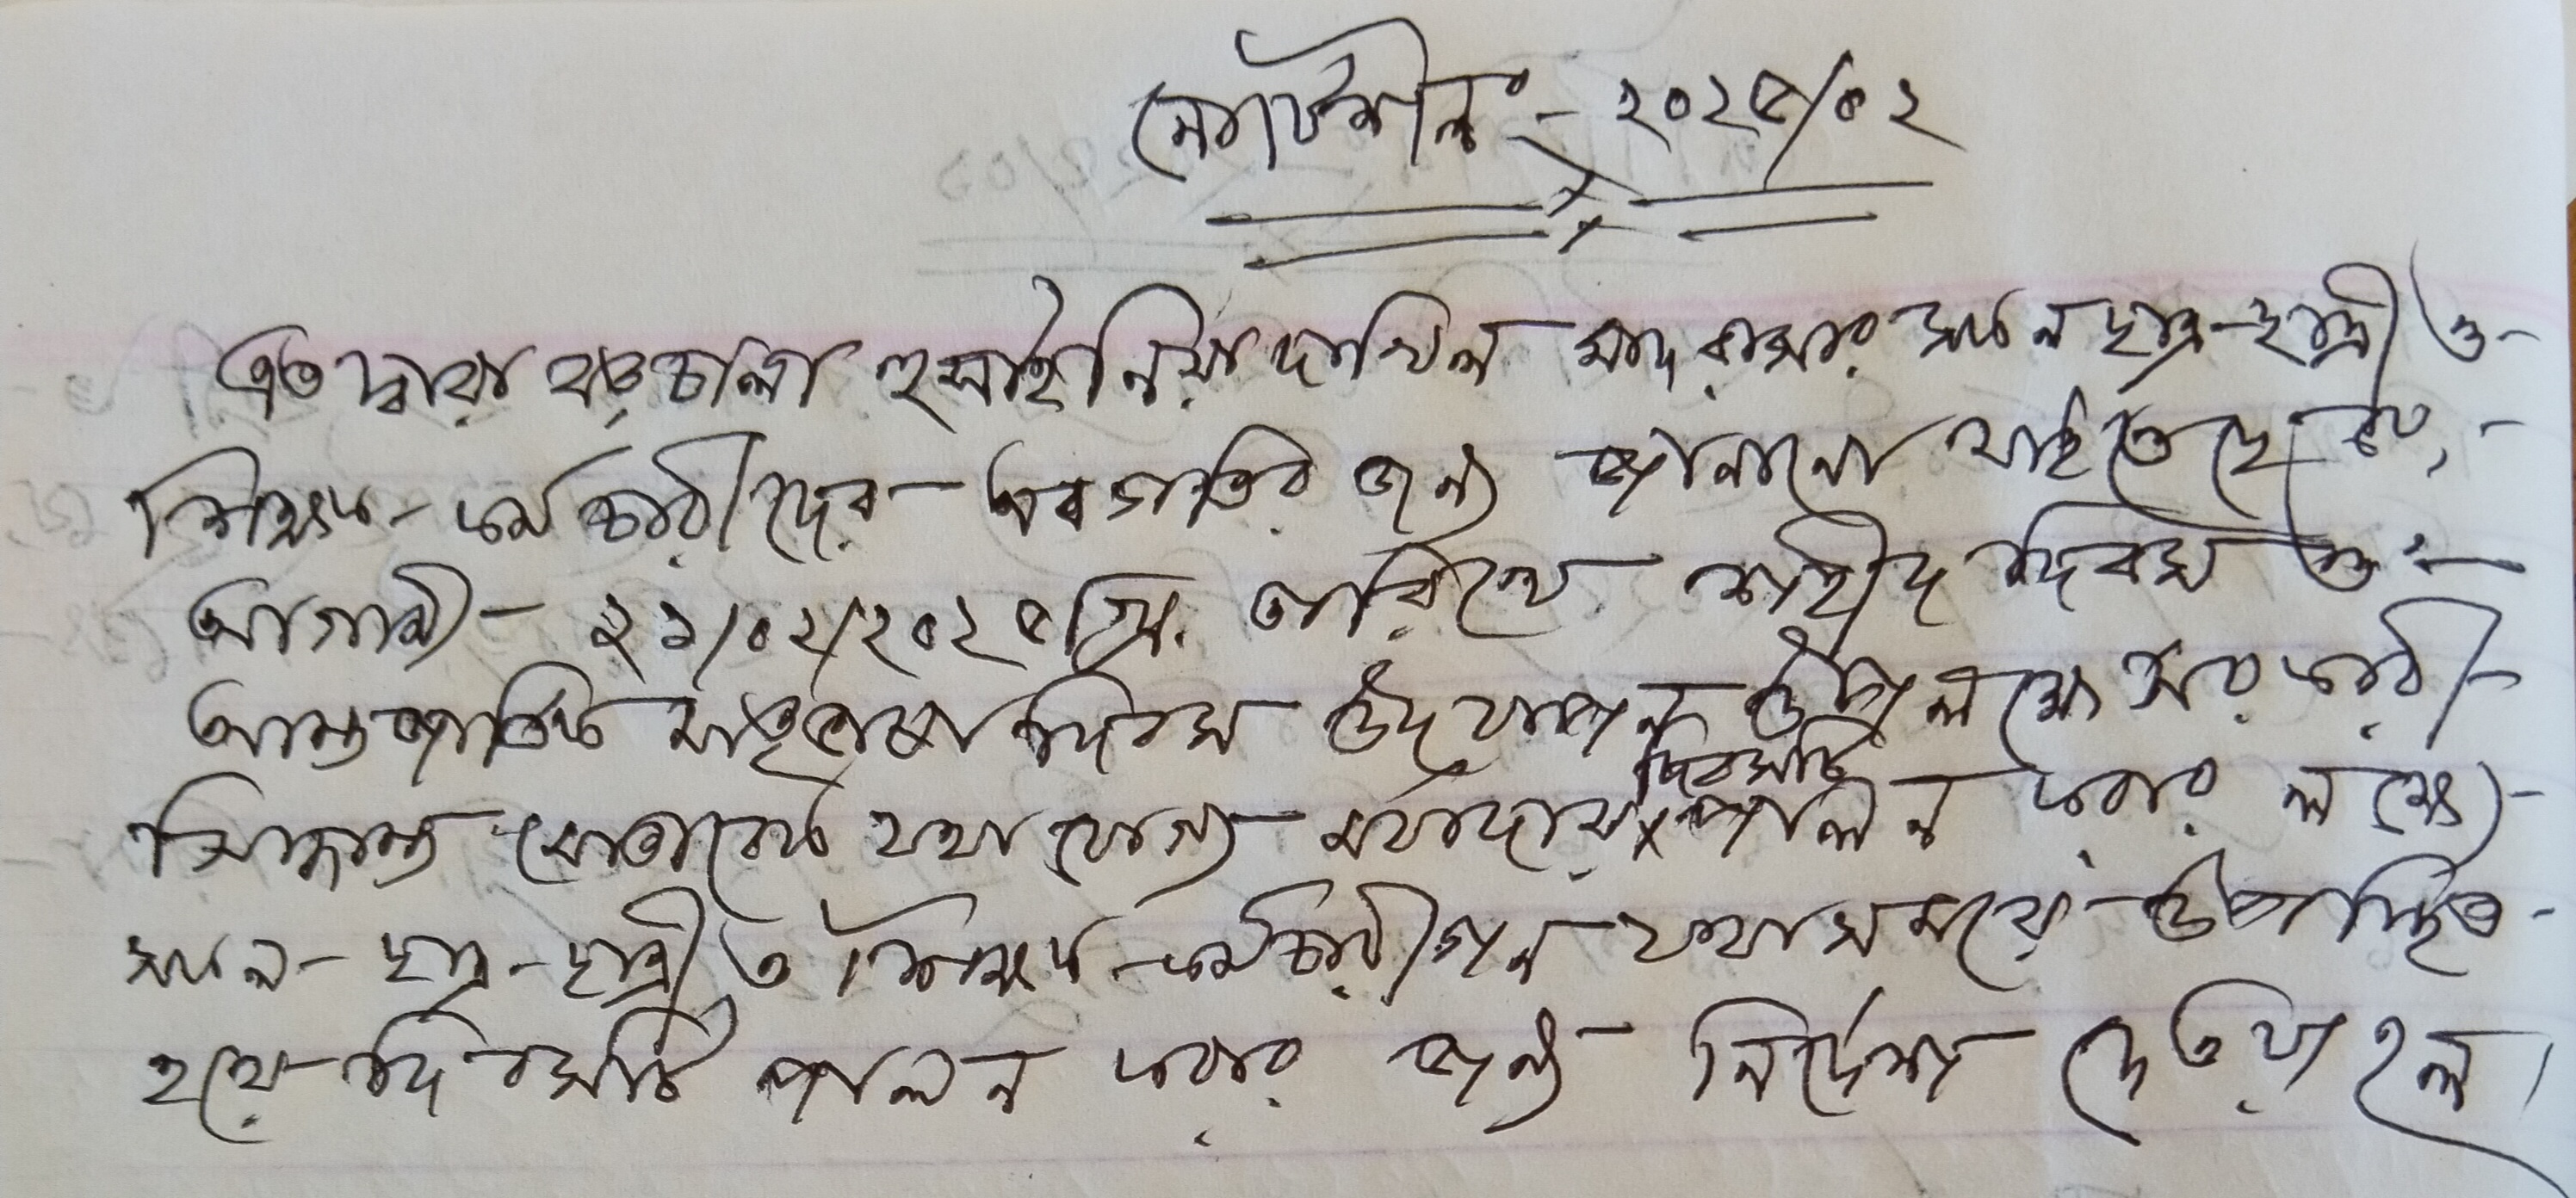 নোটিশ নং :- ২০২৫/০২
এতদ্বারা বড়চালা হুসাইনিয়া দাখিল মাদরাসার সকল ছাত্র-ছাত্রী ও-
শিক্ষক-কর্মচারীদের অবগতির জন্য জানানো যাইতেছে যে,-
আগামী- ২১/০২/২০২৫খ্রি. তারিখে শহীদ দিবস ও-
আন্তর্জাতিক মাতৃভাষা দিবস উদযাপন উপলক্ষে সরকারী-
দিবসটি
সিদ্ধান্ত মোতাবেক যথাযোগ্য মর্যাদায় পালন করার লক্ষ্যে-
সকল- ছাত্র-ছাত্রী ও শিক্ষক-কর্মচারীগন যথাসময়ে উপস্থিত-
হয়ে দিবসটি পালন করার জন্য নির্দেশ দেওয়া হল।